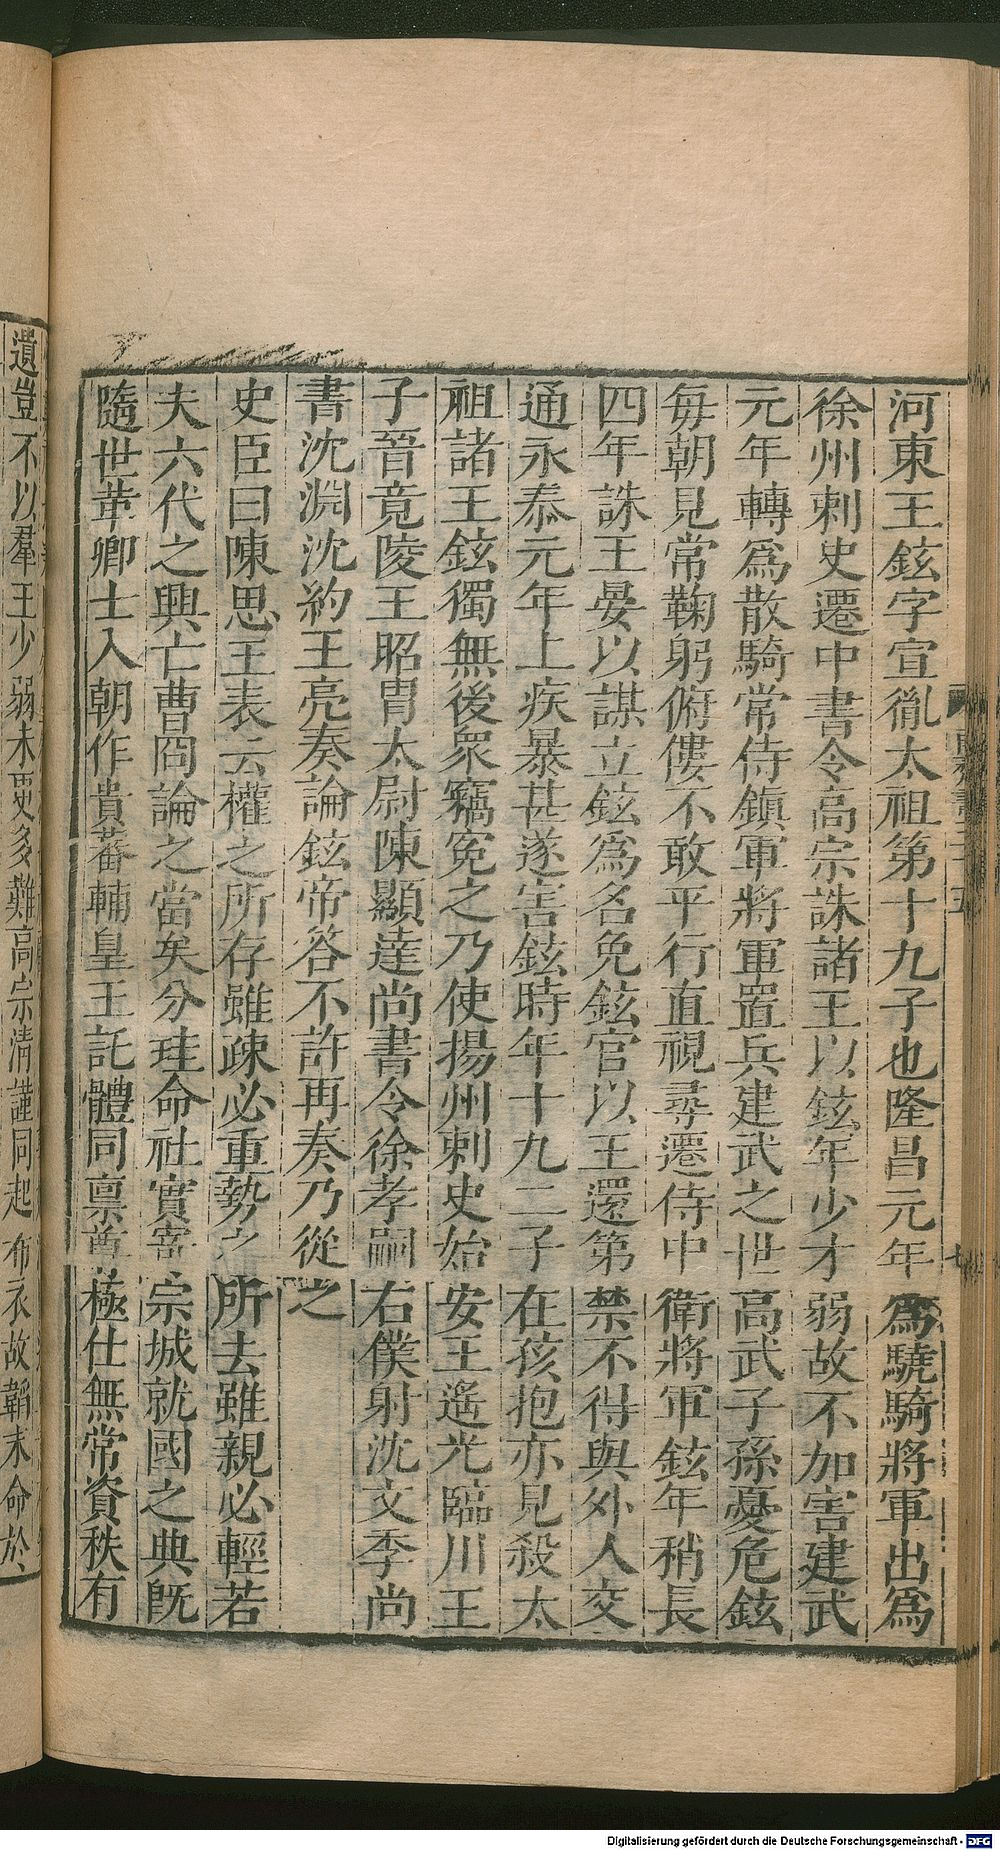 河東王鉉字宣胤太祖第十九子也隆昌元年爲驍騎將軍出爲
徐州刺史遷中書令高宗誅諸王以鉉年少才弱故不加害建武
元年轉爲散騎常侍鎮軍將軍置兵建武之世高武子孫憂危鉉
每朝見常鞠躬俯僂不敢平行直視尋遷侍中衛將軍鉉年稍長
四年誅王晏以謀立鉉爲名免鉉官以王還第禁不得與外人交
通永泰元年上疾暴甚遂害鉉時年十九二子在孩抱亦見殺太
祖諸王鉉獨無後衆竊寃之乃使揚州刺史始安王遙光臨川王
子晉竟陵王昭胄太尉陳顯達尚書令徐孝嗣右僕射沈文季尚
書沈淵沈約王亮奏論鉉帝答不許再奏乃從之
史臣曰陳思王表云權之所存雖疎必重勢之所去雖親必輕若
夫六代之興亡曹冏論之當矣分珪命社實寄宗城就國之典旣
隨世革卿士入朝作貴蕃輔皇王託體同禀尊極仕無常資秩有
遺豈不以羣王少弱未更多難高宗清謹同起布衣故韜末命於
Digitalisierung gefördert durch die Deutsche Forschungsgemeinschaft - DFG